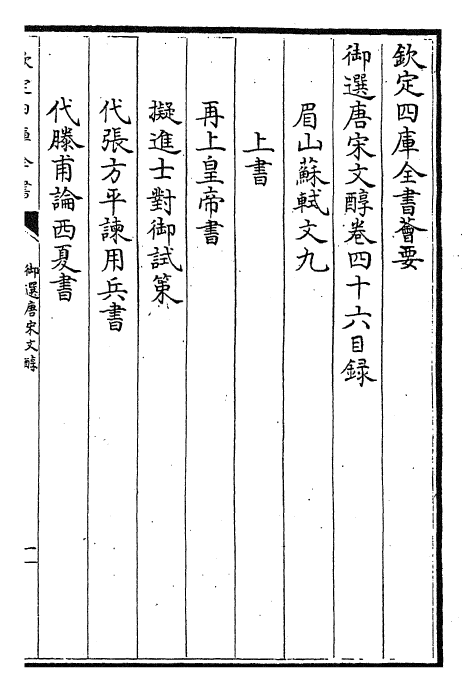 欽定四庫全書薈要
御選唐宋文醇卷四十六目録
眉山蘇軾文九
上書
再上皇帝書
擬進士對御試策
代張方平諫用兵書
代滕甫論西夏書
欽定四庫全書
御選唐宋文醇
一